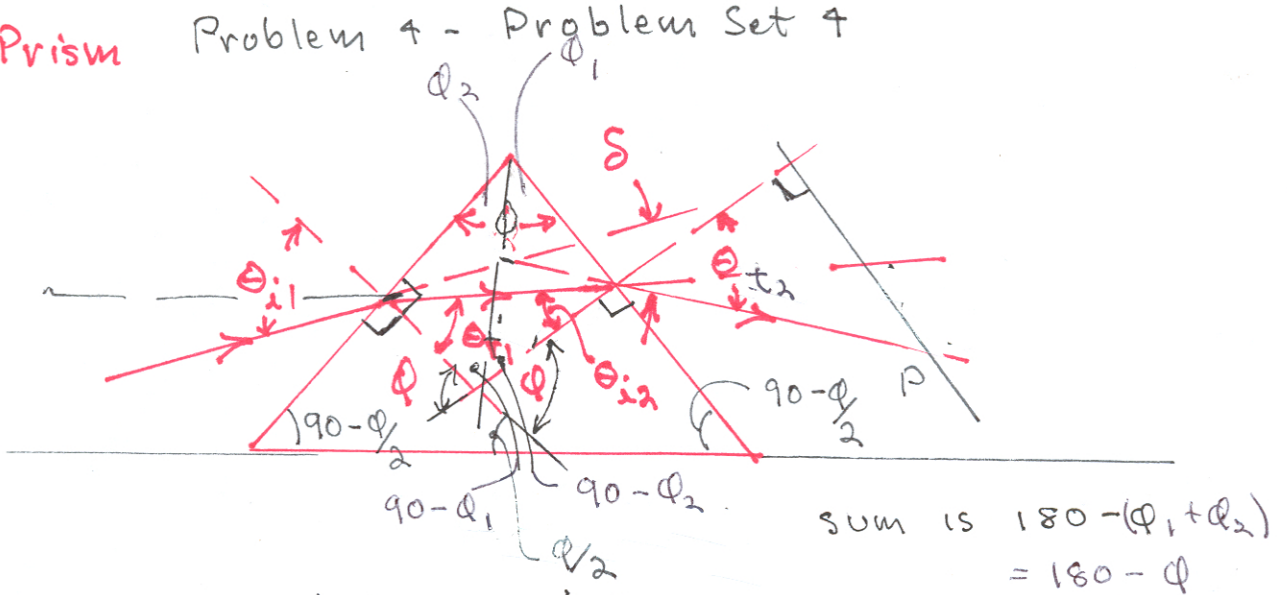 Prism Problem 4 - Problem Set 4
φ₂ φ₁
δ
φ
θi1
θt2
φ θt1 φ θi2
90-φ/2
90-φ/2
P
90-φ₁ 90-φ₂
φ/2
sum is 180-(φ₁+φ₂)
= 180-φ